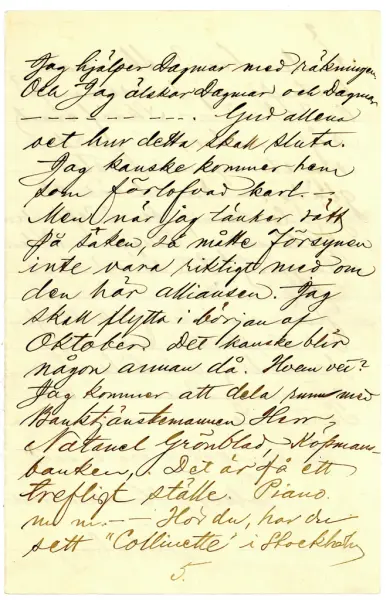 Jag hjälper Dagmar med räkningen
Och Jag älskar Dagmar och Dagmar
- - - - - - - - - - - . Gud allena
vet hur detta skall sluta.
Jag kanske kommer hem
som förlofvad karl. -
Men när jag tänker rätt
på saken, så måtte Försynen
inte vara riktigt med om
den här alliansen. Jag
skall flytta i början af
Oktober. Det kanske blir
någon annan då. Hvem vet?
Jag kommer att dela rum med
Banktjänstemannen Herr
Natanel Grönblad, Köpmans-
banken,. Det är på ett
trefligt ställe. Piano.
m. m. - - Hör du, har du
sett "Collinette" i Stockholm
5.